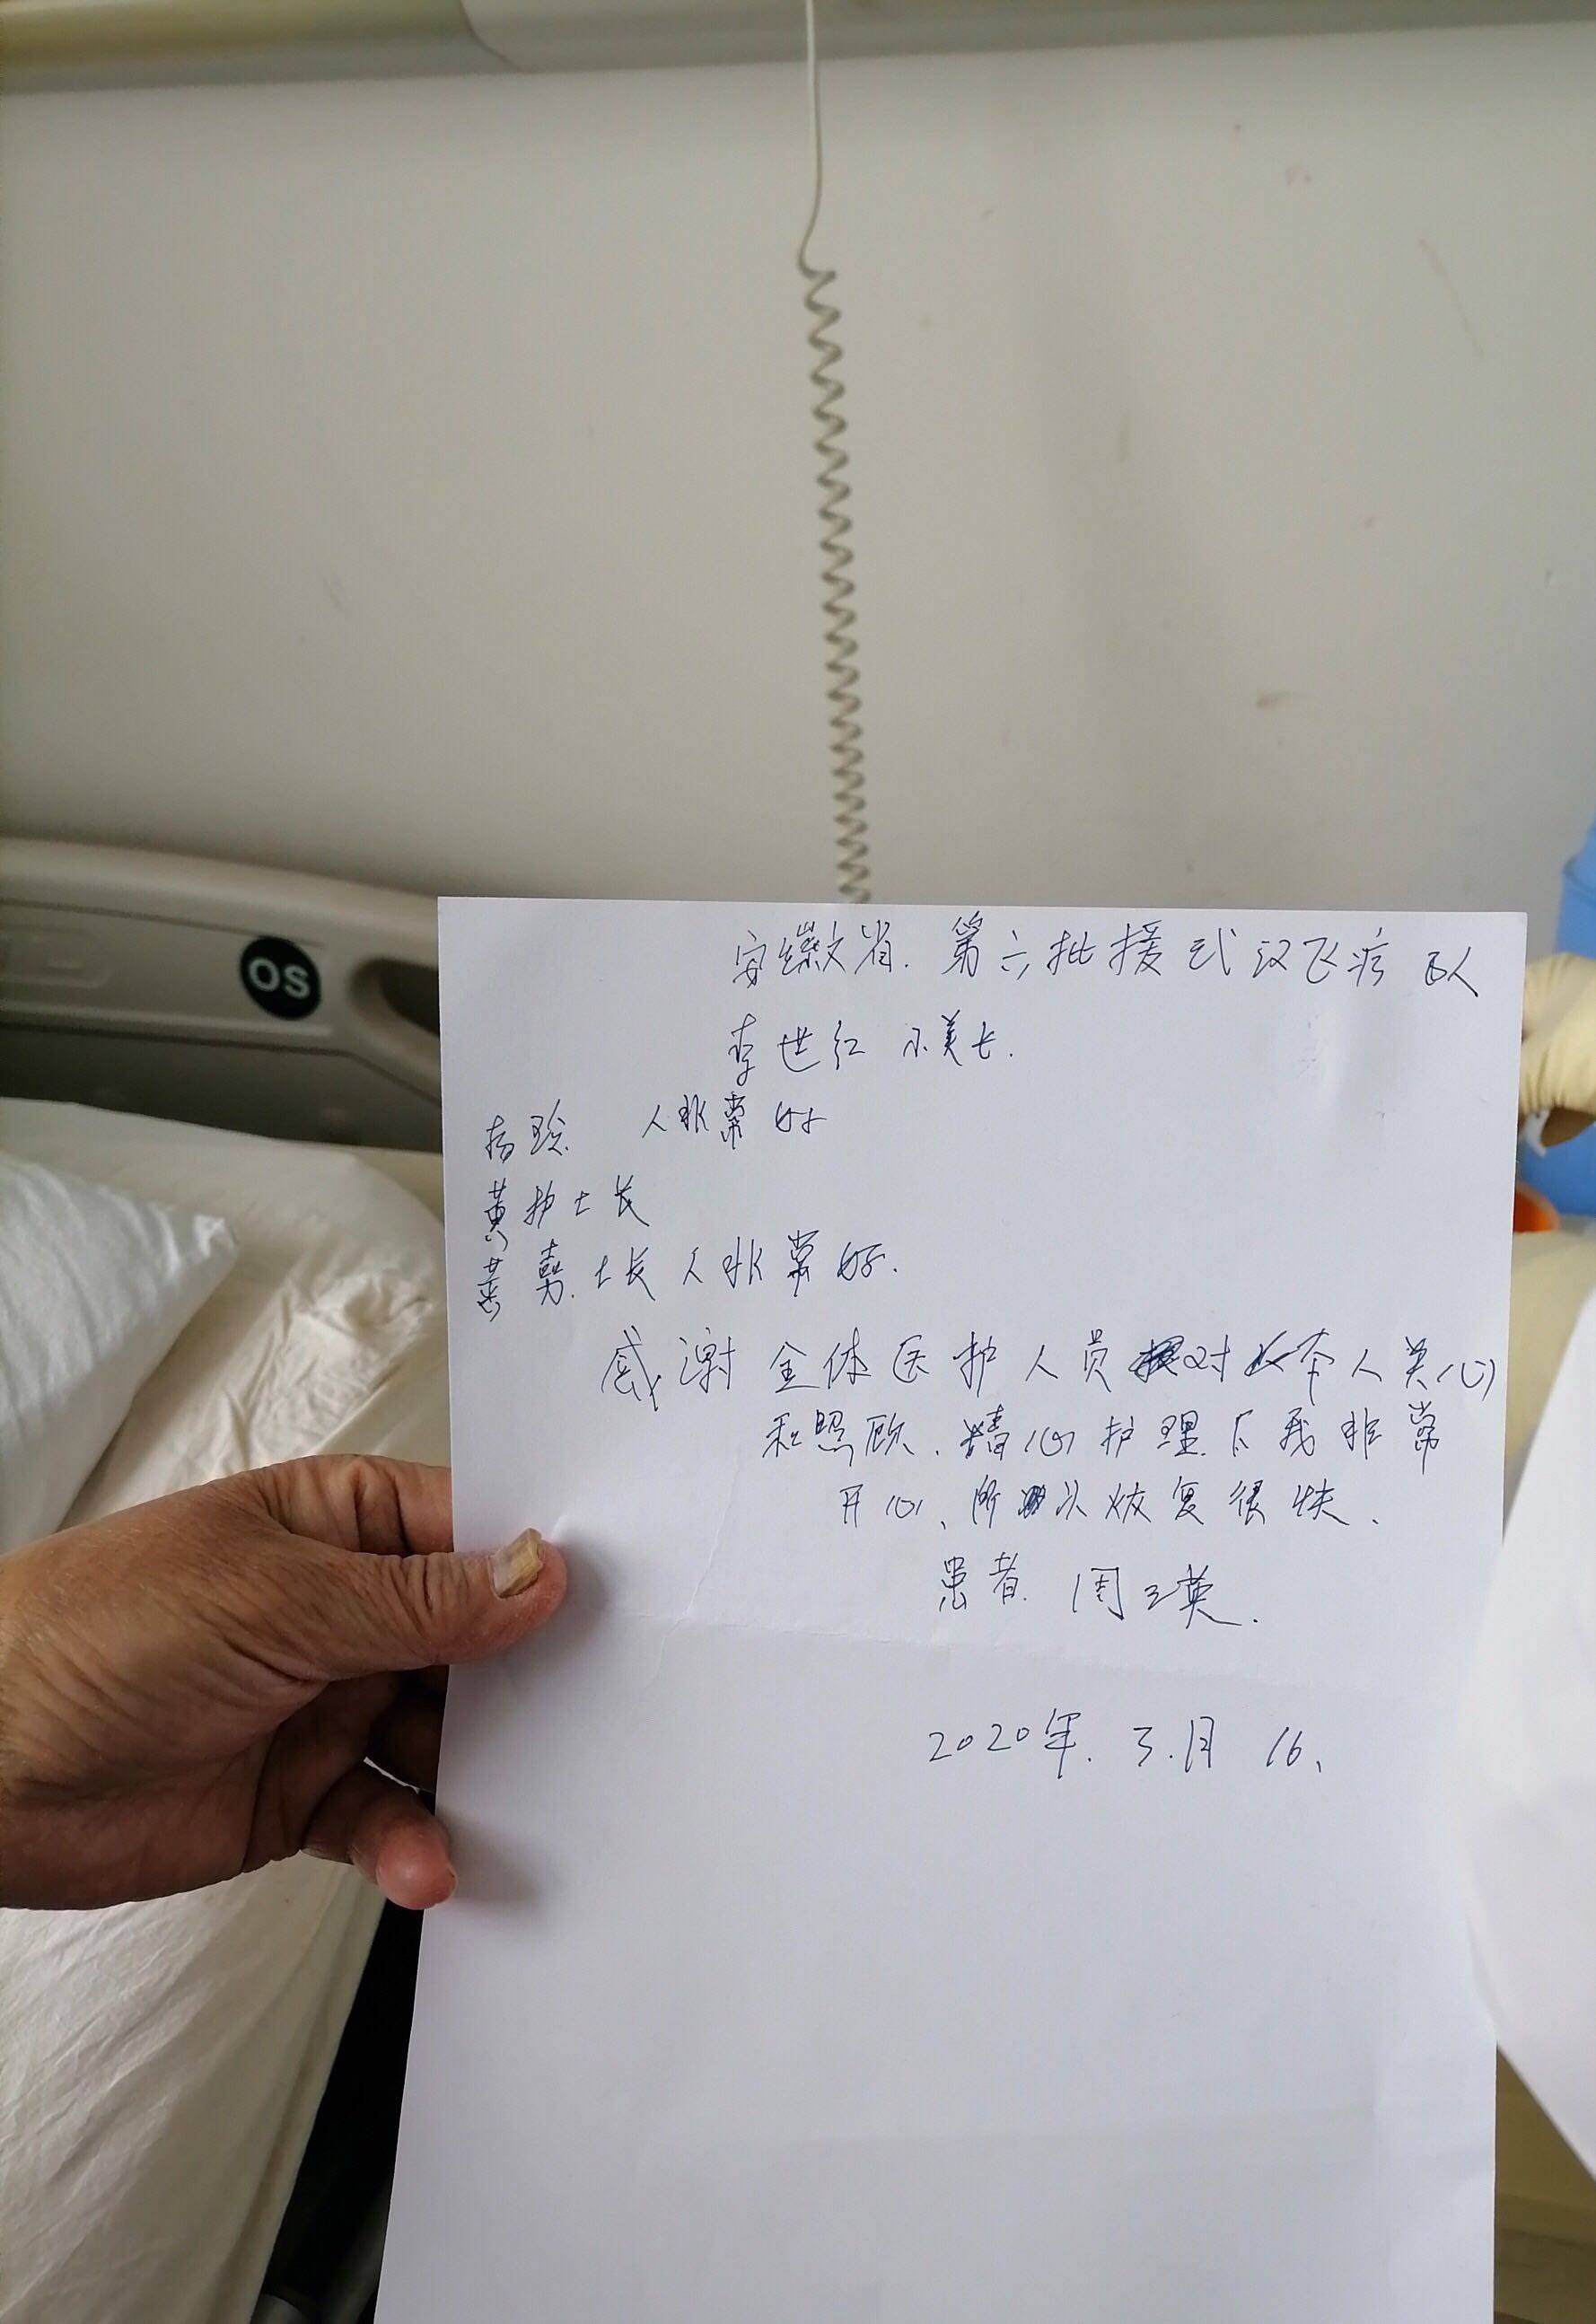 OS
安徽省.第六批援武汉医疗队
李世红
杨玲 人非常好
黄护士长
黄勇.士长人非常好.
感谢全体医护人员对本人关心
和照顾、精心护理下我非常
开心、所以恢复很快、
患者 周三英.
2020年.3.月 16、